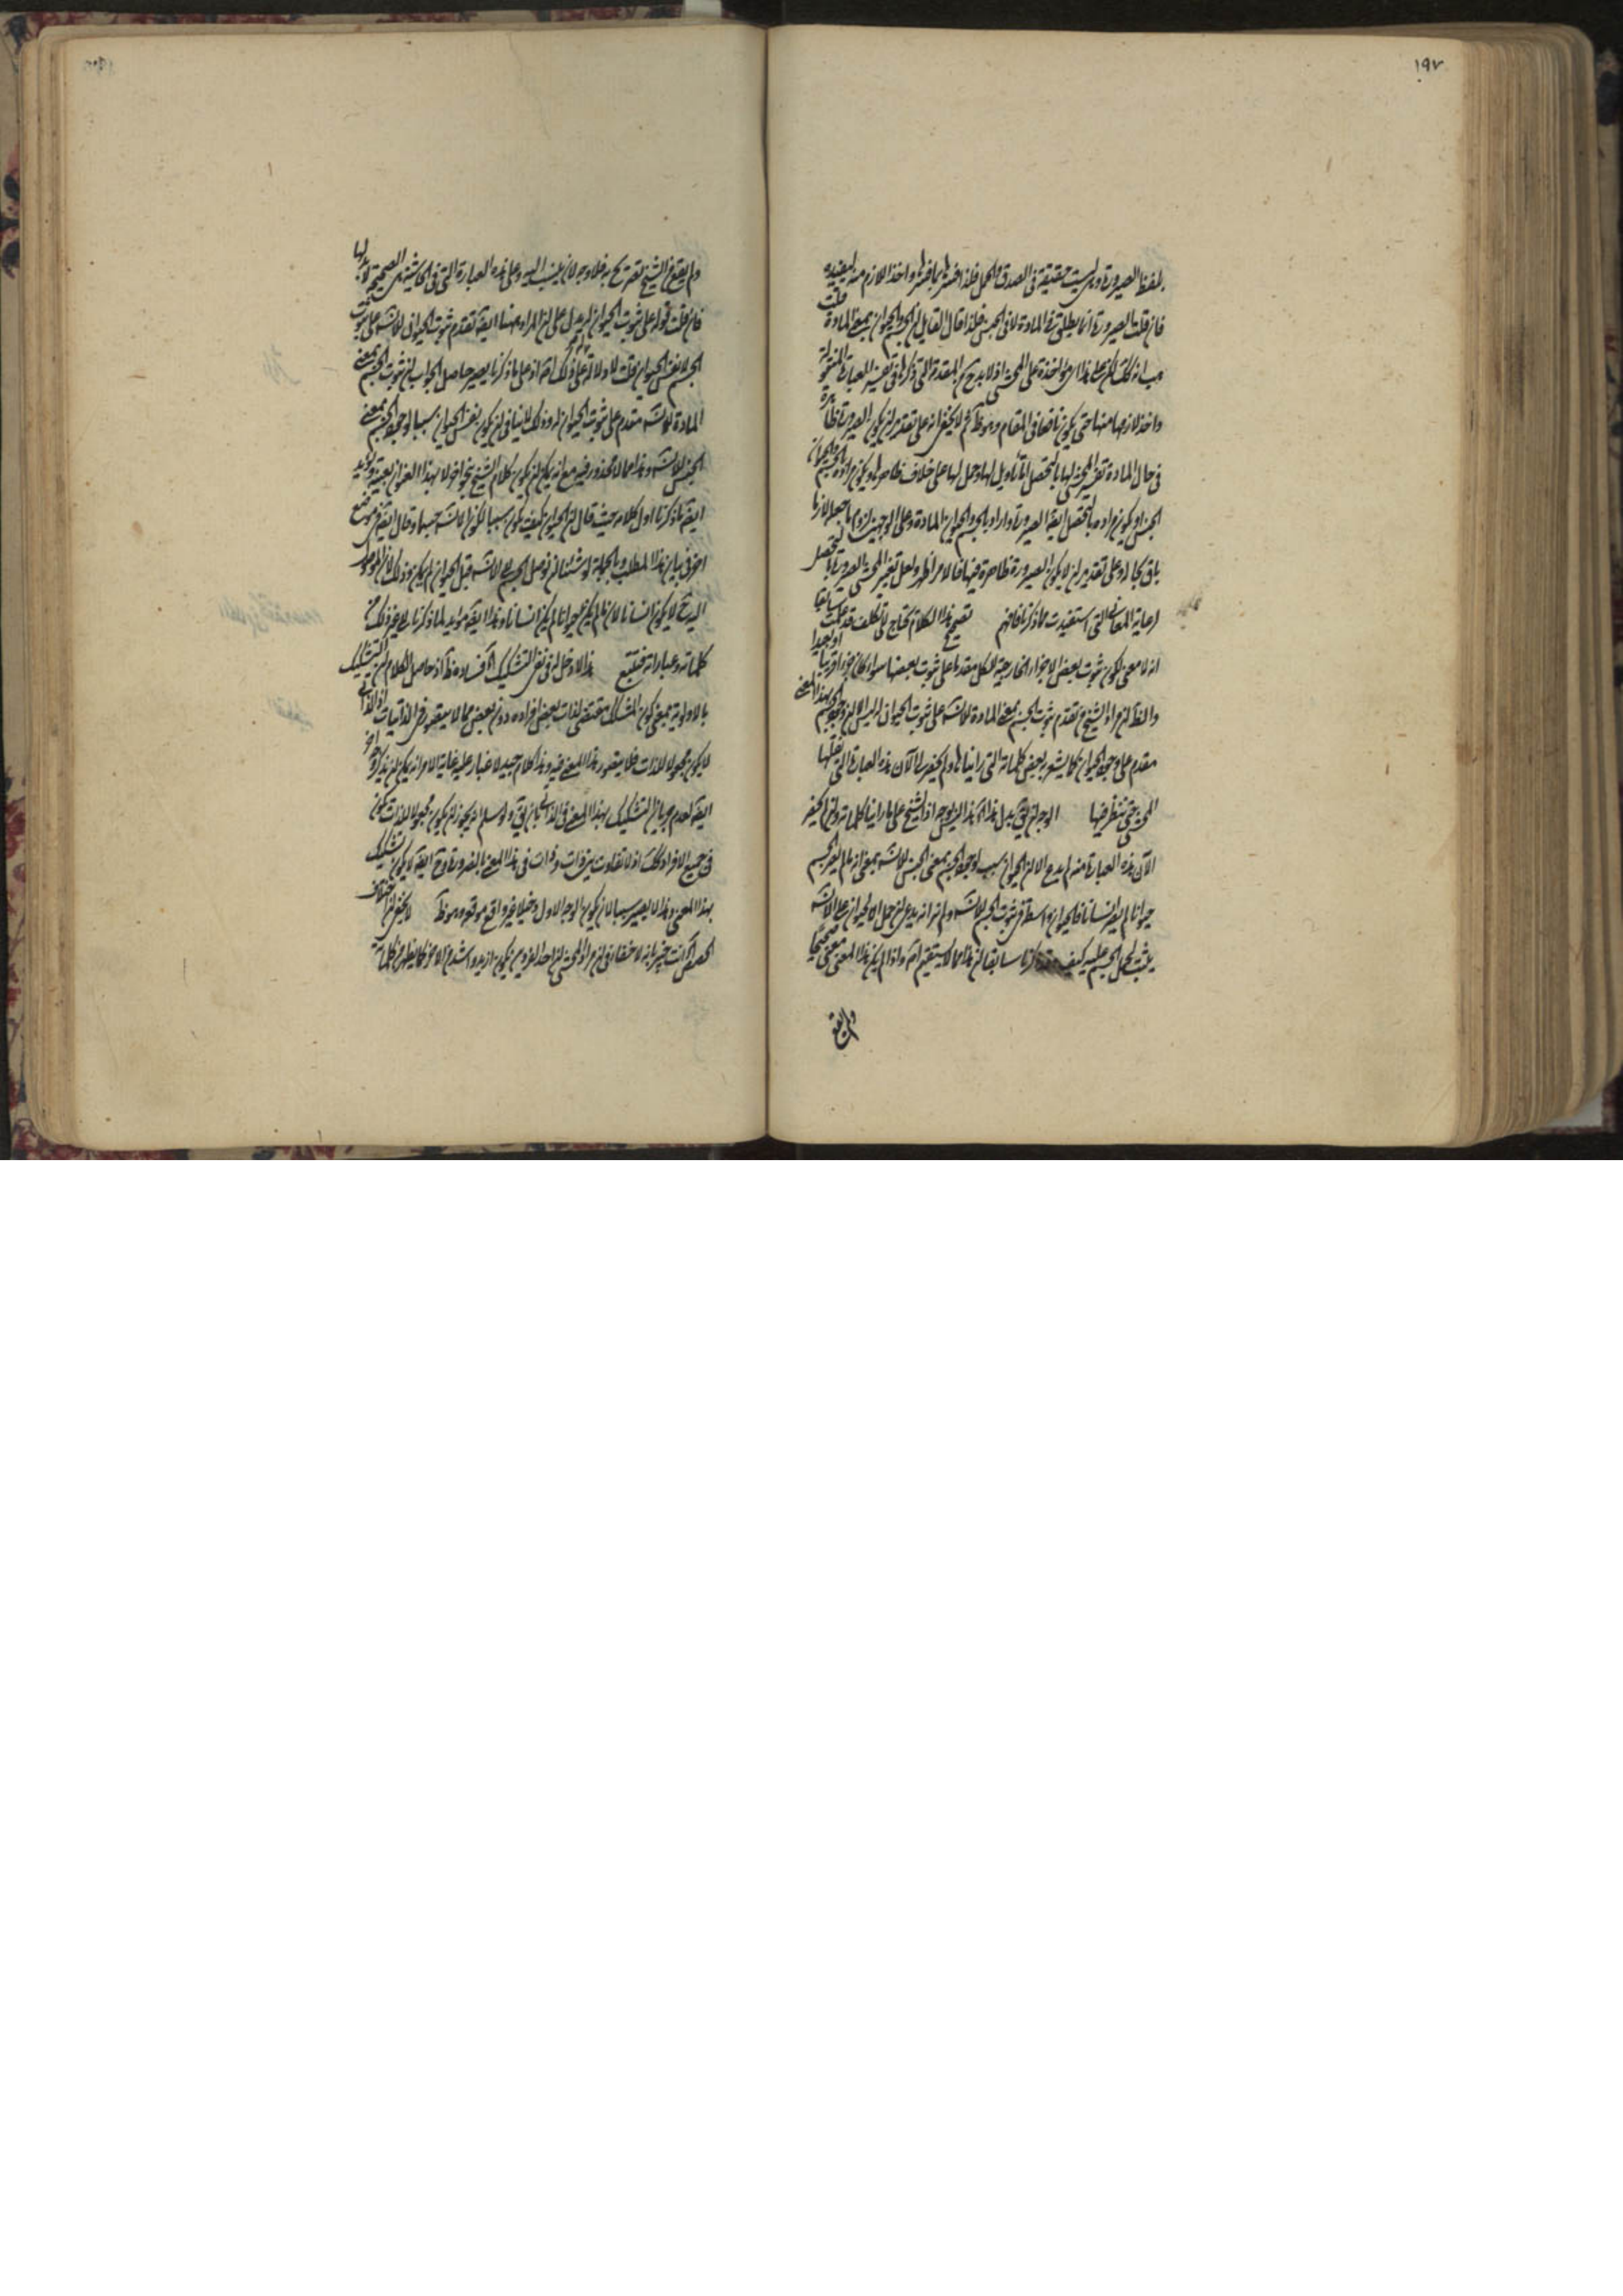 ١٩٧
بلفظ الصيرورة وهى ليست حقيقة فى الصدق والحمل فلذا فسرها بما فسرها واخذ اللازم منه ليفيده
فان قلت الصيرورة انما يطلق فى المادة لا فى الجنس فلذا قال القايل ان الجسم والحيوان بمعنى المادة قلت
هب انه كذلك لكن على هذا اى مؤاخذة على المحشى اذ لا يدرج المقدمة التى ذكرها فى تفسير العبارة المنقولة
واخذ لازمها منها حتى يكون نافعا فى المقام وهو ظ ثم لا يخفى انه على تقدير ان يكون الصيرورة ظاهرة
فى حال المادة تفسير المحشى لها بالتحصل اما تأويل لها وحمل لها على خلاف ظاهرها ويكون مراده بالجسم والحيوان
الجنس او يكون مراده بالتحصل ايضا الصيرورة واراد بالجسم والحيوان المادة وعلى الوجهين لزوم ما جعله لازما
باق بحاله وعلى تقدير ان لا يكون الصيرورة ظاهرة فيها فالامر اظهر ولعل تفسير المحشى الصيرورة بالتحصل
لرعاية المعانى التى استفيدت مما ذكرنا فافهم تصحيح هذا الكلام يحتاج الى تكلف قد علمت سابقا
انه لا معنى لكون ثبوت بعض الاجزاء الخارجية للكل مقدما على ثبوت بعضها سواء كان جزءا قريبا او بعيدا
والظ ان مراد الشيخ من تقدم ثبوت الجسم بمعنى المادة للانسان على ثبوت الحيوان له ليس الا ان وجود الجسم بهذا المعنى
مقدم على وجود الحيوان كما يشعر به بعض كلماته التى رايناها ولم يحضرنا الآن هذه العبارة التى نقلها
المحشى حتى ننظر فيها الوجه ان يقى بدل هذا ان هذا ليس بوجه اذ الشيخ على ما راينا كلماته وان لم يحضر
الآن هذه العبارة منه لم يدع الا ان الحيوان سبب لوجود الجسم بمعنى الجنس للانسان بمعنى انه ما لم يصر الجسم
حيوانا لم يصر انسانا فالحيوان واسطة فى ثبوت الجسم للانسان ولم نر انه يدعى ان حمل الحيوان على الانسان
يثبت لحمل الجسم عليه كيف وقد ذكرنا سابقا ان هذا مما لا يستقيم اصلا واذا لم يكن هذا المعنى معنى صحيحا
ولم يقع
ولم يقع من الشيخ تصريح به فلا وجه لان ينسب اليه وعلى هذه العبارة التى فى الحاشية هى الصحيحة لا بدلها
فان قلت قوله على ثبوت الحيوان له يدل على ان المراد هنا ايضا تقدم ثبوت الحيوان للانسان على ثبوت
الجسم لا نفس الحيوان قلت لا دلالة له على ذلك اصلا اذ على ما ذكرنا يصير حاصل الجواب ان ثبوت الجسم بمعنى
المادة للانسان متقدم على ثبوت الحيوان له وذلك لا ينافى ان يكون نفس الحيوان سببا لوجود الجسم بمعنى
الجنس للانسان وهذا مما لا محذور فيه مع انه يمكن ان يكون كلام الشيخ بنحو آخر لا بهذا العنوان بعينه ويؤيد
ايضا ما ذكرنا اول كلامه حيث قال ان الحيوان كيف يكون سببا لكون الانسان جسما وقال ايضا فى موضع
آخر فى بيان هذا المطلب وبالجملة لو شئنا ان نوصل الجسم الى الانسان قبل الحيوان لم يمكن وذلك لان الموصل
اليه ح لا يكون انسانا لان ما لم يكن حيوانا لم يكن انسانا وهذا ايضا مؤيد لما ذكرنا الى غير ذلك من
كلماته وعباراته فتتبع هذا لا دخل له فى نفى التشكيك اه فساده ظ اذ حاصل الكلام ان التشكيك
بالاولوية بمعنى كون المشكك مقتضى لذات بعض افراده دون بعض مما لا يتصور فى الذاتيات اذ الذاتى
لا يكون مجعولا للذات فلا يتصور هذا المعنى فيه وهذا كلام جيد لا غبار عليه غاية الامر انه يمكن ان يذكر وجه آخر
ايضا لعدم جريان التشكيك بهذا المعنى فى الذاتى بان يقى ولو سلم انه يجوز ان يكون مجعولا للذات يكون
فى جميع الافراد كذلك اذ لا تفاوت بين ذات وذات فى هذا المعنى بالضرورة وح ايضا لا يكون تشكيك
بهذا المعنى وهذا لا يصير سببا لان يكون الوجه الاول دخيلا غير واقع موقعه وهو ظ لا يخفى ان اختلاف
الحصص اه انت خبير بانه لا خفاء فى ان مراد المحشى ان احد الفردين يكون ازيد واشد من الآخر كما يظهر من كلماته